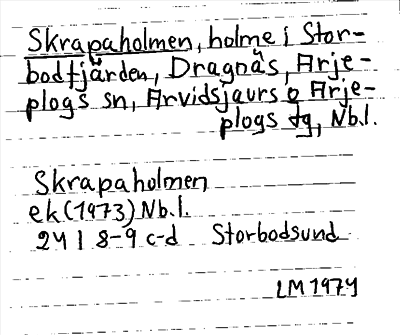 Skrapaholmen, holme i Stor-
bodfjärden, Dragnäs, Arje-
plogs sn, Arvidsjaurs o Arje-
plogs tg, Nb.l.
Skrapaholmen
ek (1973) Nb.l.
24 I 8-9 c-d Storbodsund
LM 1974